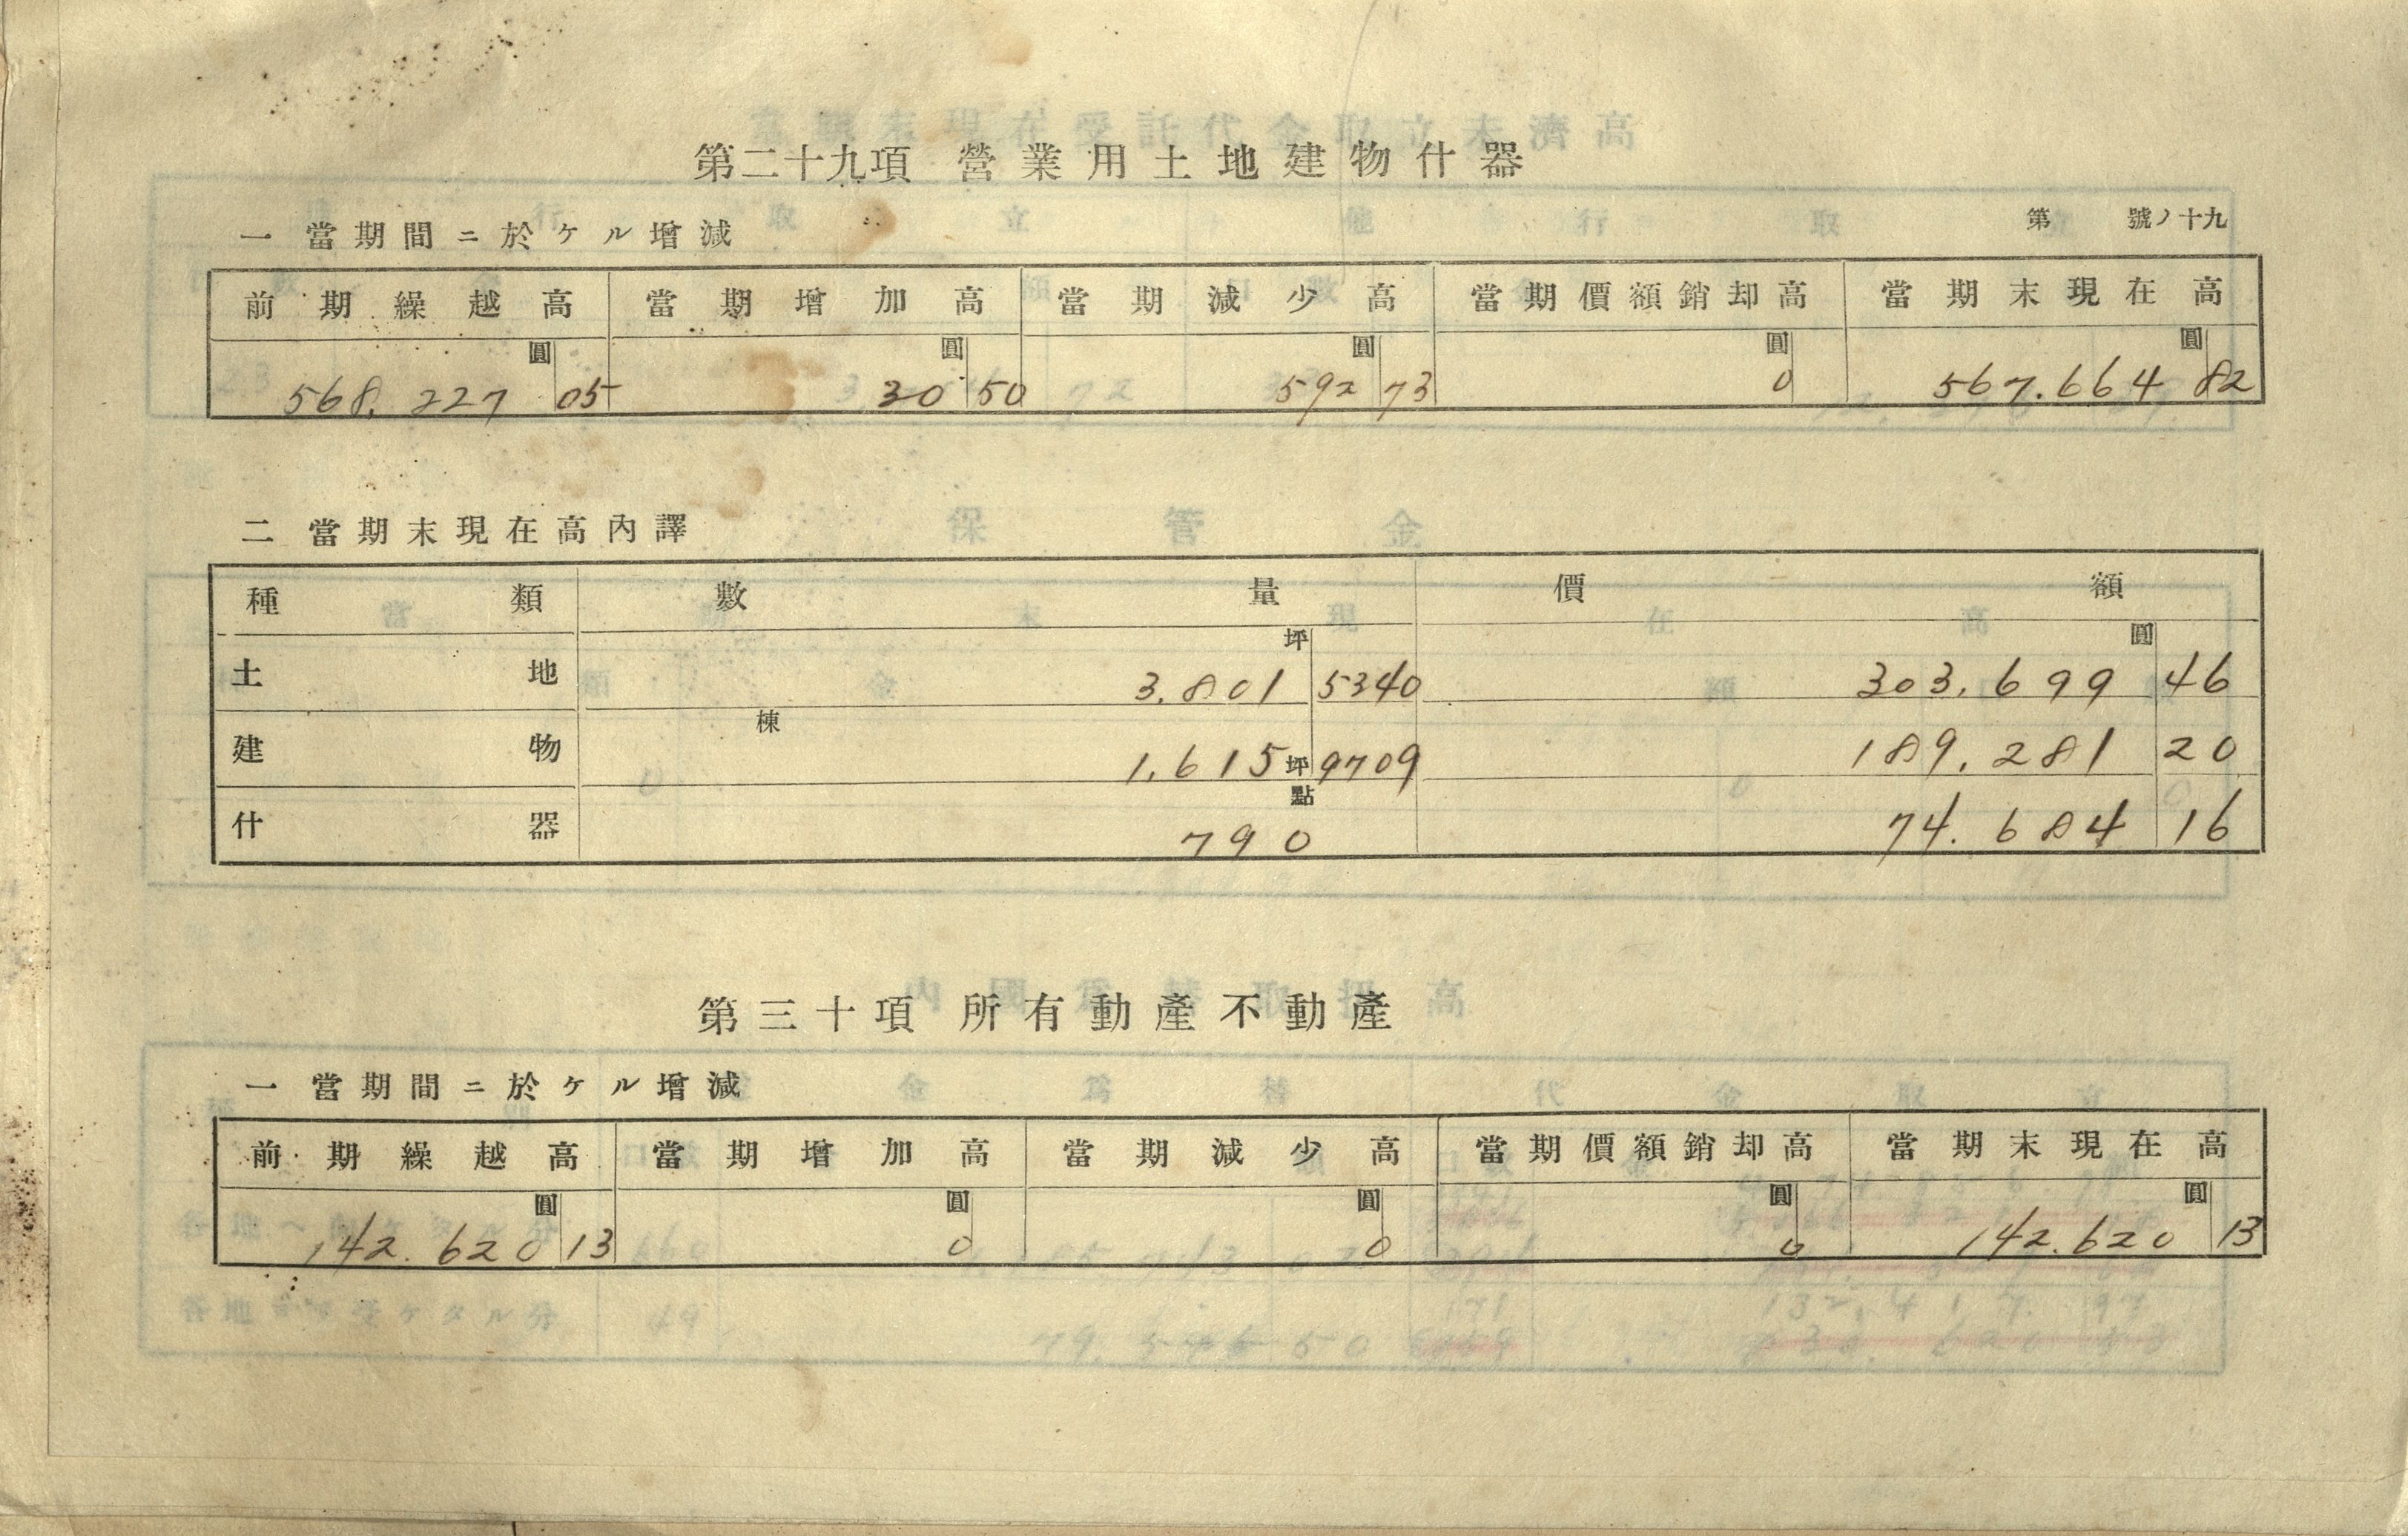 第二十九項 營業用土地建物什器
第 號ノ十九
一 當期間ニ於ケル增減
前期繰越高 當期增加高 當期減少高 當期價額銷却高 當期末現在高
圓 圓 圓 圓 圓
568.227 05 30 50 592 73 0 567.664 82
二 當期末現在高內譯
種類 數量 價額
坪 圓
土地 3.801 5340 303.699 46
棟
建物 1.615坪9709 189.281 20
點
什器 790 74.684 16
第三十項 所有動產不動產
一 當期間ニ於ケル增減
前期繰越高 當期增加高 當期減少高 當期價額銷却高 當期末現在高
圓 圓 圓 圓 圓
142.620 13 0 0 0 142.620 13